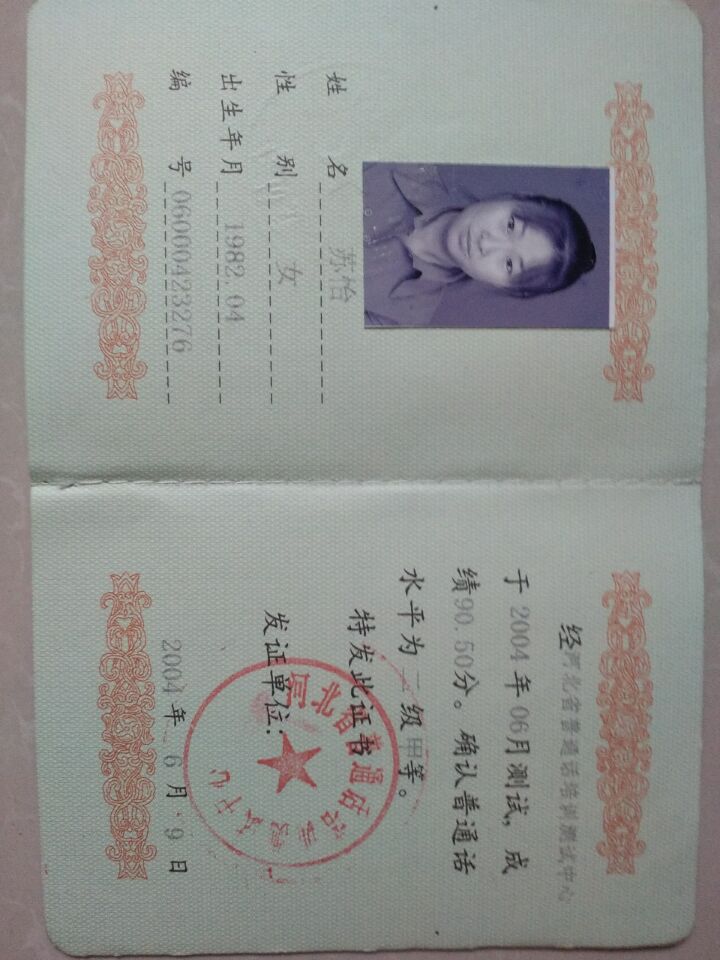 姓 名 苏怡
性 别 女
出生年月 1982.04
编 号 06000423276
经河北省普通话培训测试中心
于2004年06月测试，成
绩90.50分。确认普通话
水平为二级甲等。
特发此证书
发证单位：
2004年 6月 9日